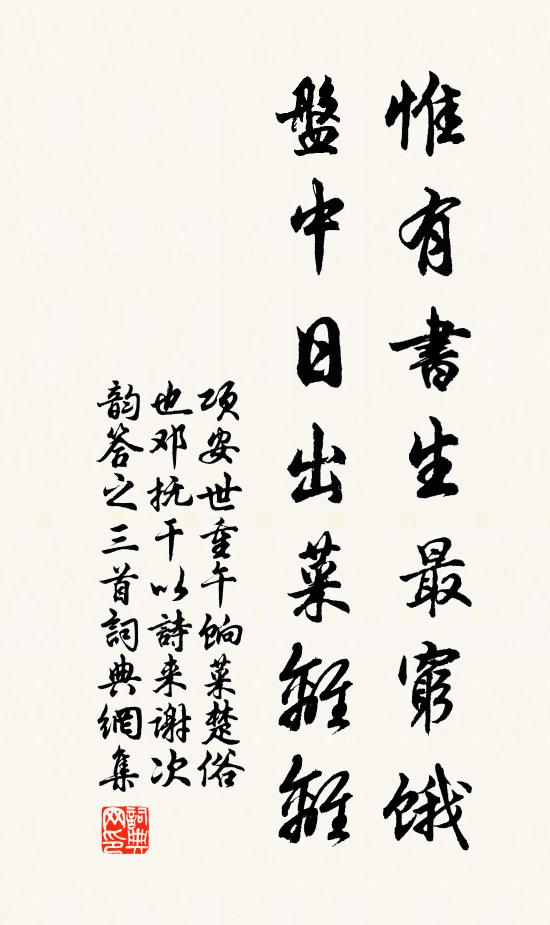 惟有書生最窮餓
盤中日出菜離離
项安世重午饷菜楚俗
也邓抚干以詩来謝次
韵答之三首詞典網集
詞典网印